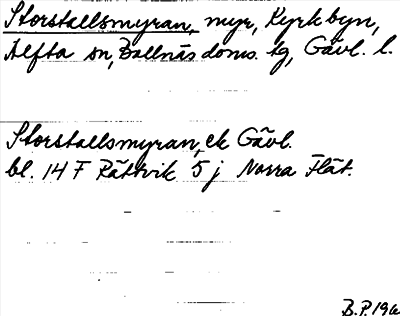 Storstallsmyran, myr, Kyrkbyn,
Alfta sn, Bollnäs doms. tg, Gävl. l.
Storstallsmyran, ek Gävl.
bl. 14 F Rättvik 5 j Norra Flät.
B.P. 196